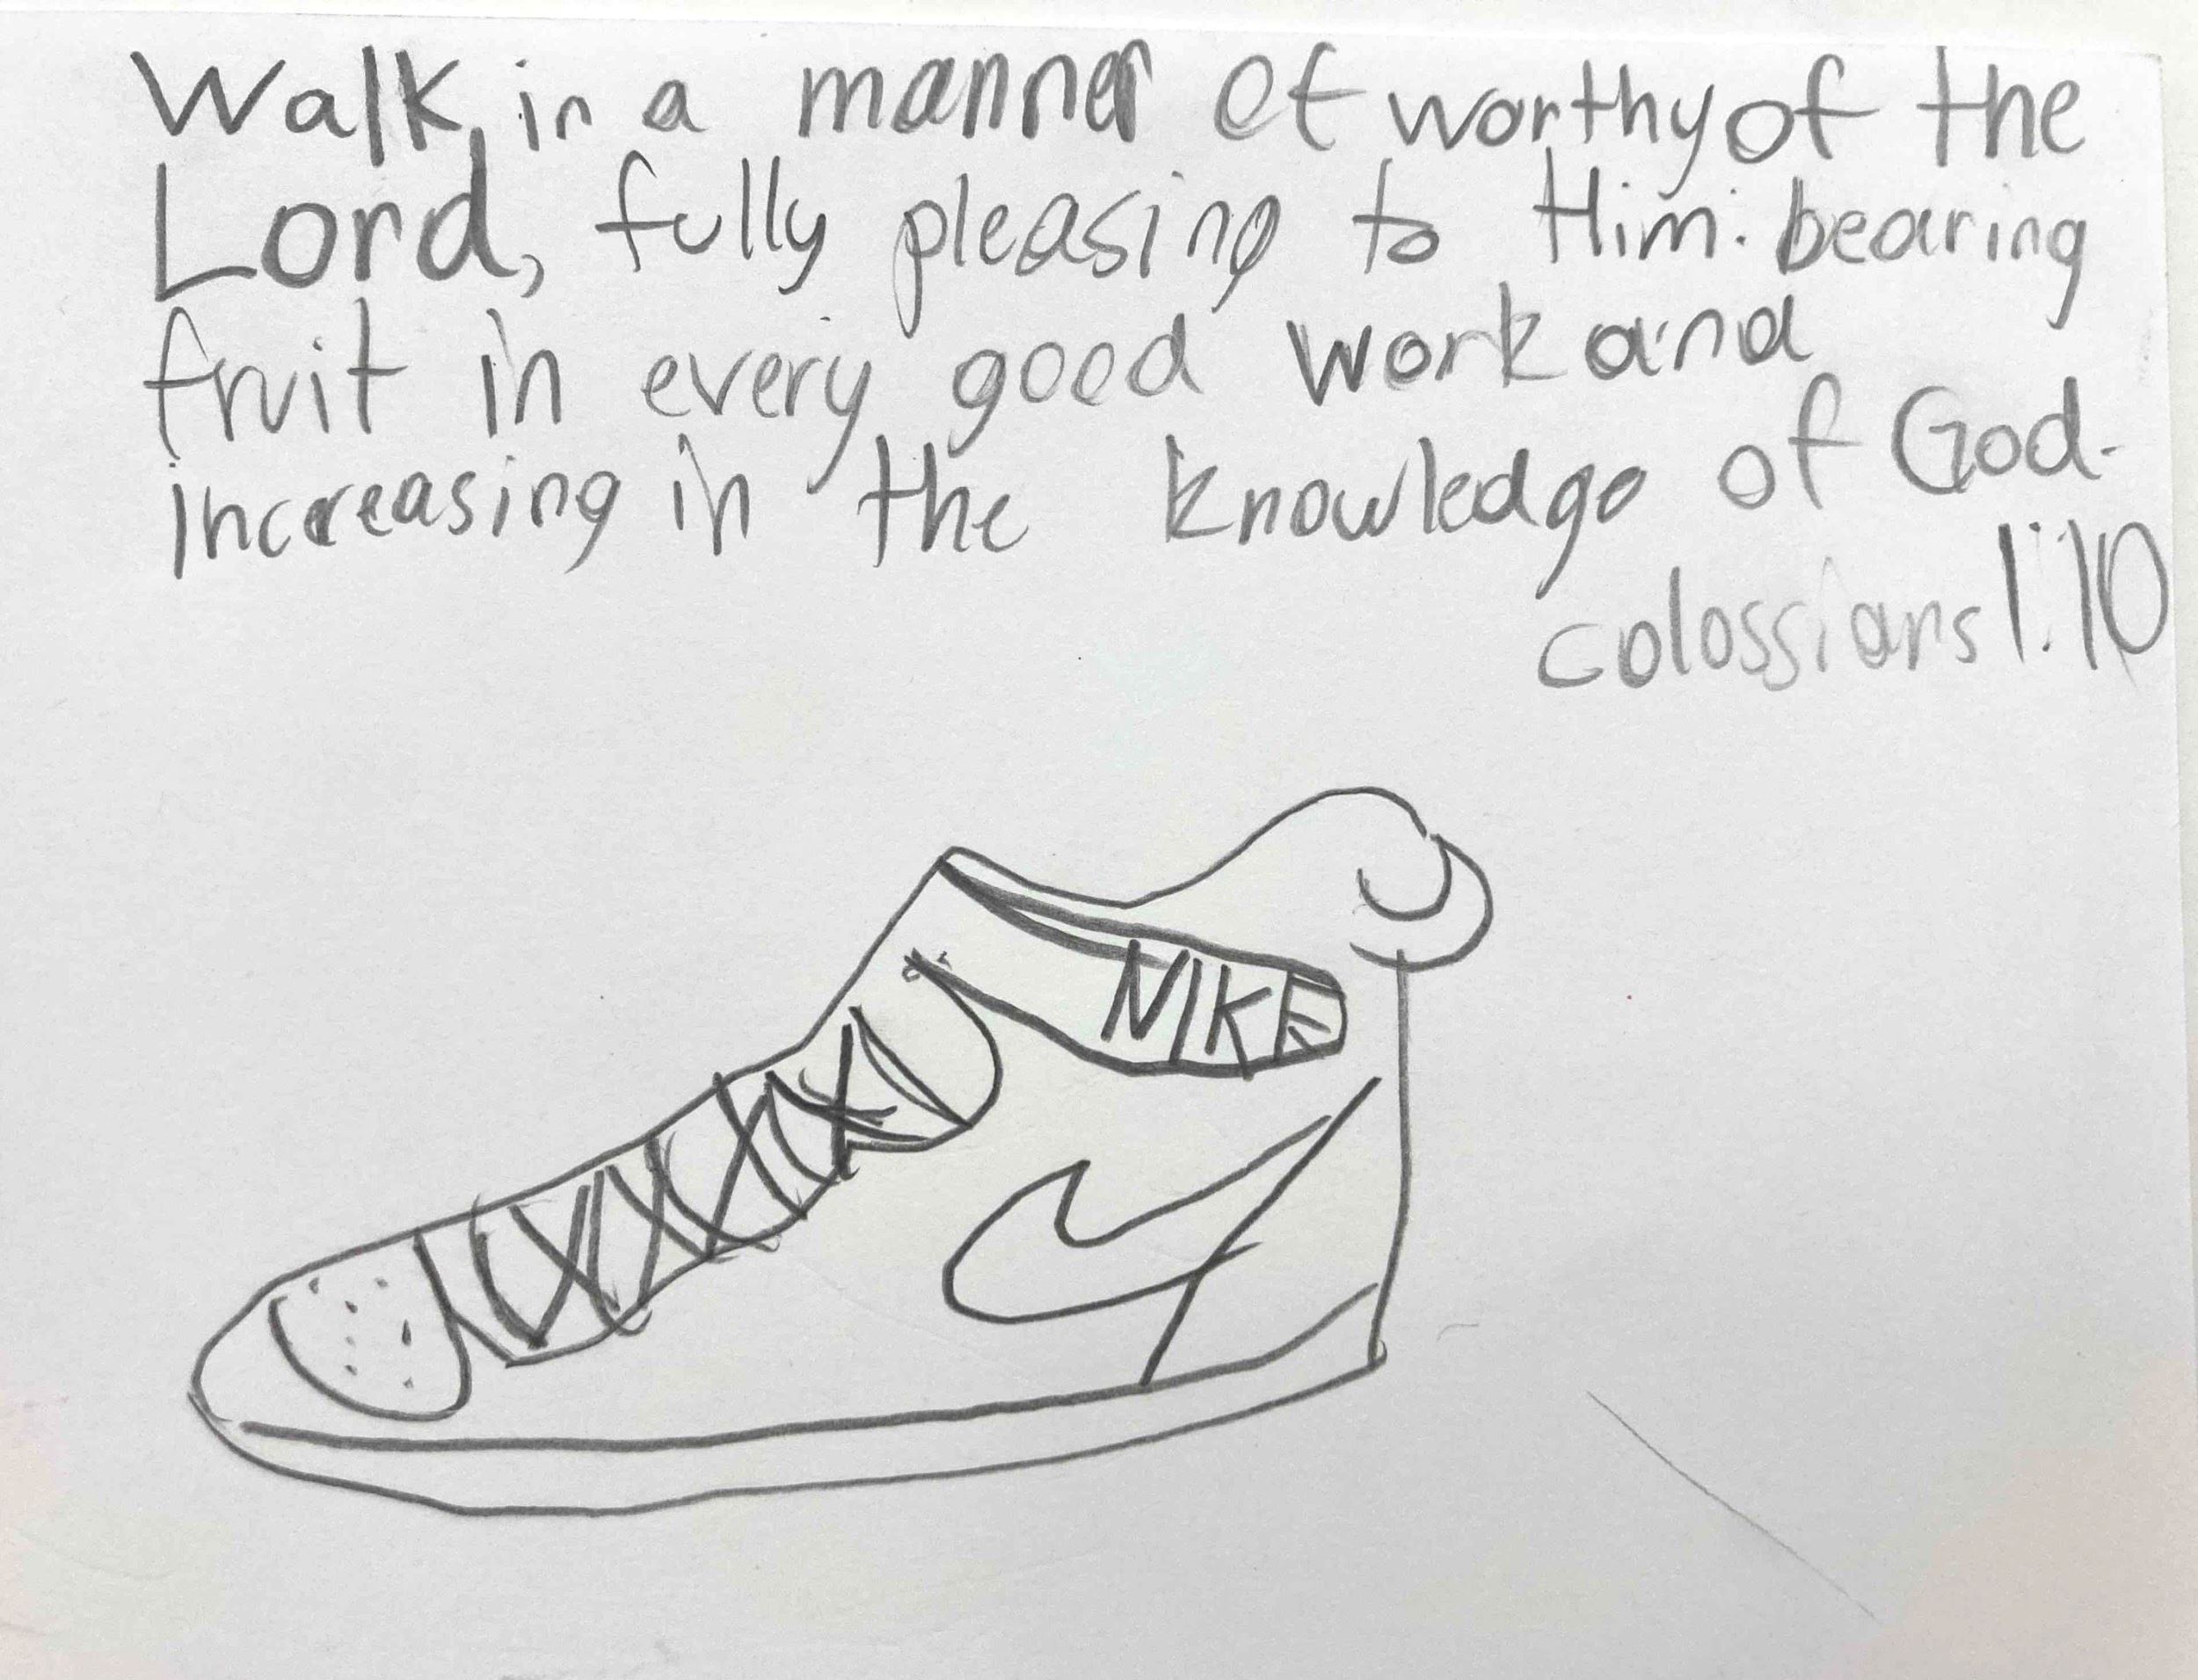 Walk, in a manner of worthy of the
Lord, fully pleasing to Him: bearing
fruit in every good work and
increasing in the knowledge of God.
colossians 1:10
NIKE